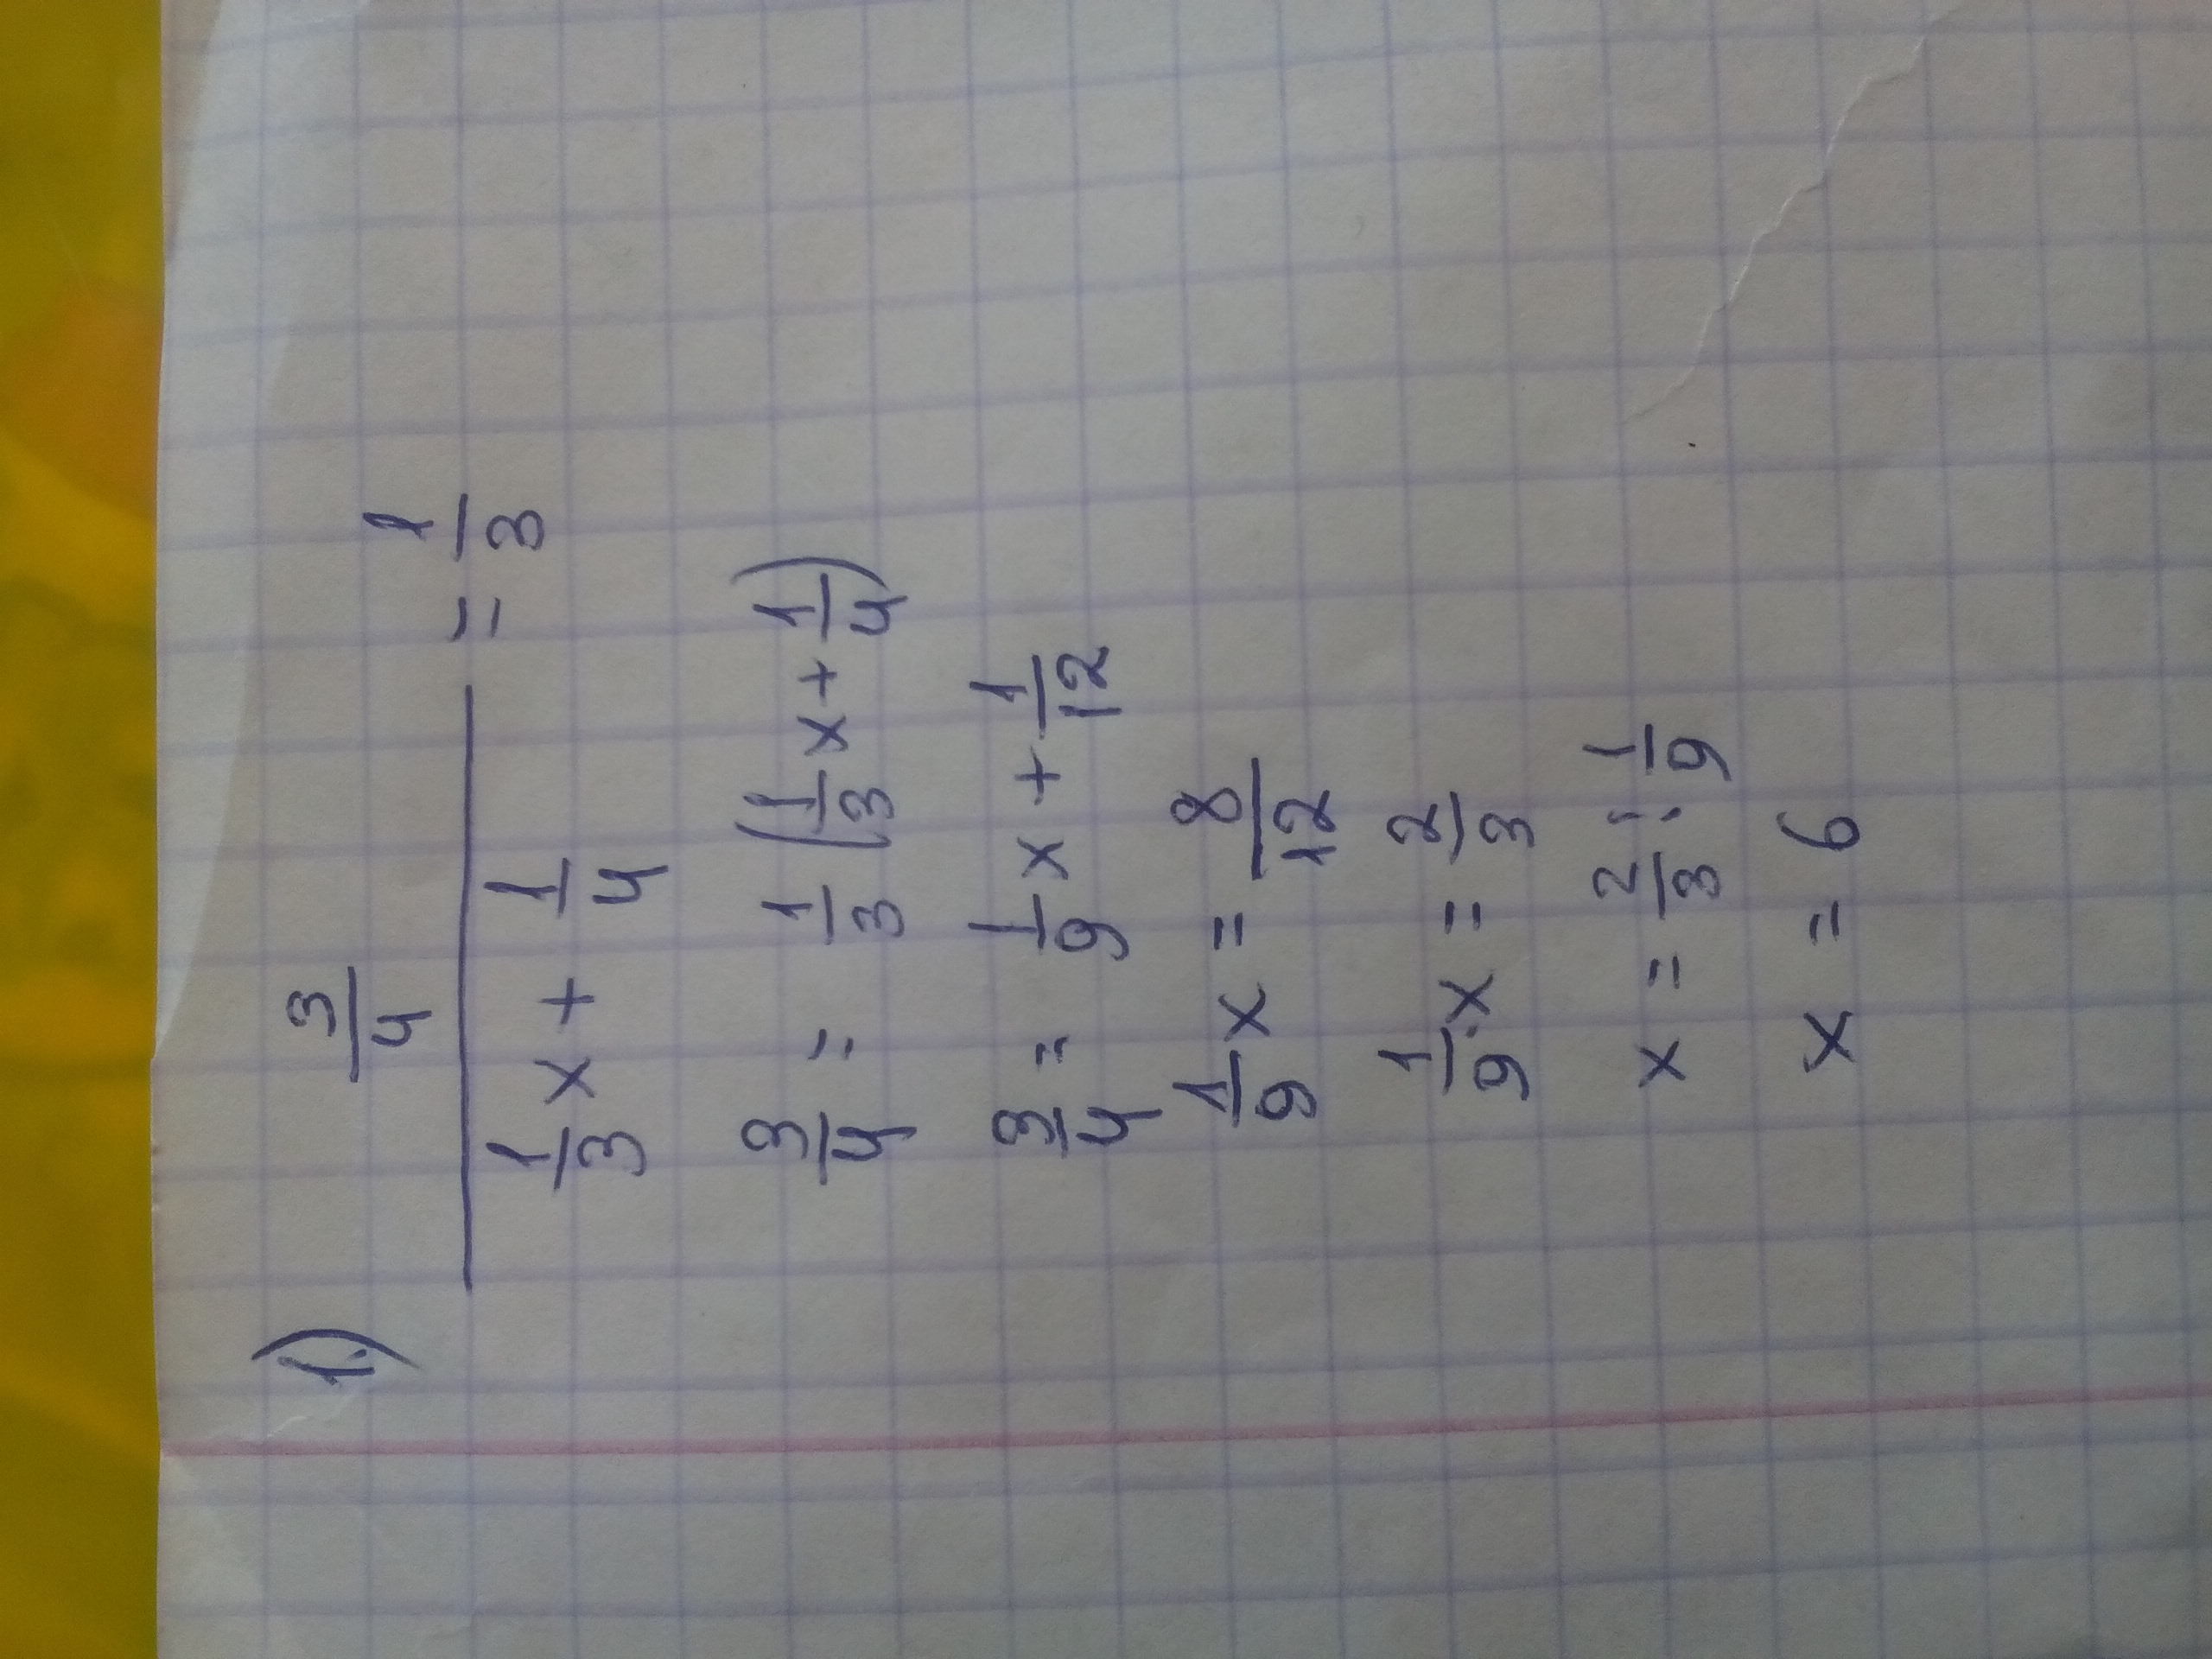 1) 3/4 / (1/3 x + 1/4) = 1/3
3/4 = 1/3 (1/3 x + 1/4)
3/4 = 1/9 x + 1/12
1/9 x = 8/12
1/9 · x = 2/3
x = 2/3 : 1/9
x = 6